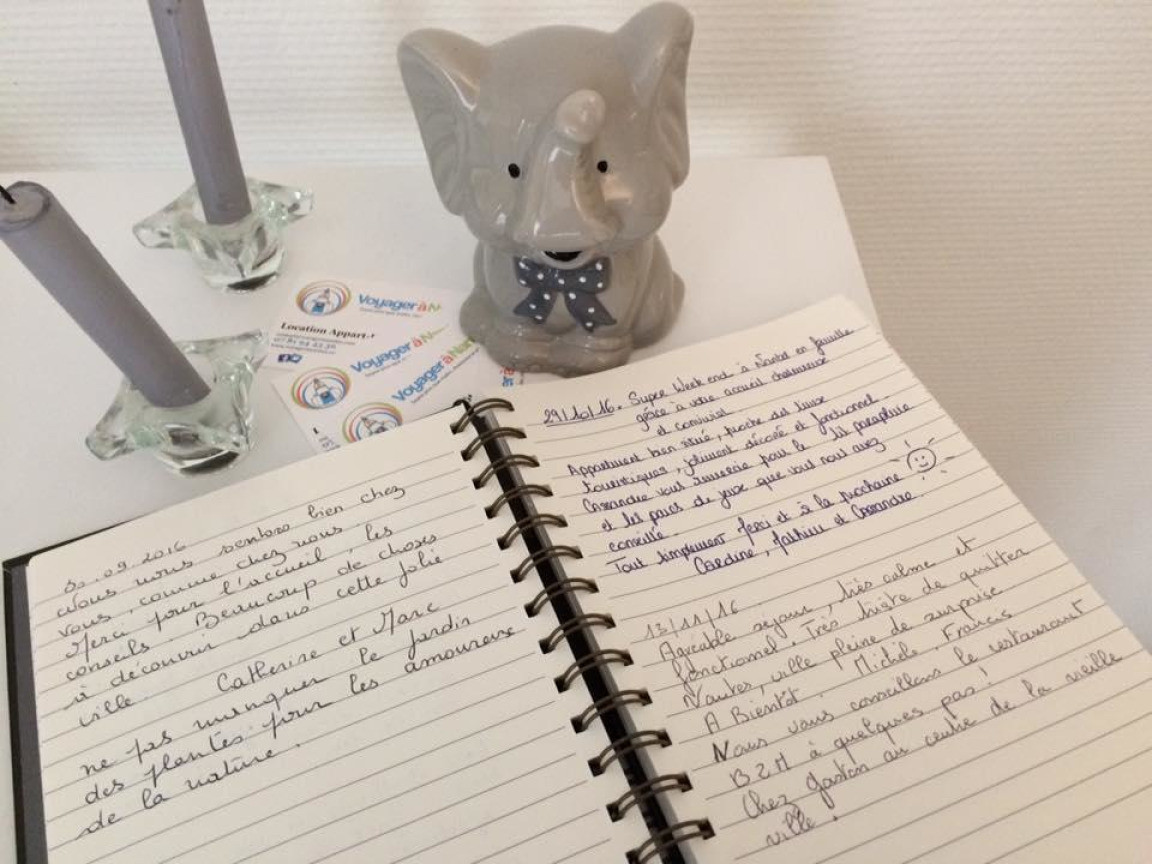 Voyager à N
Location Appart
07 81 94 42 36
Voyager à Nan
30.09.2016
Nous nous sentons bien chez
vous, comme chez nous.
Merci pour l'accueil, les
conseils. Beaucoup de choses
à découvrir dans cette jolie
ville
Catherine et Marc
ne pas manquer le jardin
des plantes pour les amoureuse
de la nature.
29/10/16. Super Week end à Nantes en famille
grâce à votre accueil chaleureux
et convivial
Appartement bien situé, proche des lieux
touristiques, joliment décoré et fonctionnel.
Cassandre vous remercie pour le lit parapluie
et les parcs de jeux que vous nous avez
conseillé.
Tout simplement Merci et à la prochaine
Caroline, Mathieu et Cassandre.
13/11/16
Agréable séjour, très calme et
fonctionnel. Très triste de quitter
Nantes, ville pleine de surprise
A Bientôt. Michèle. Francis
Nous vous conseillons le restaurant
B2M à quelques pas!
Chez Gaston au centre de la vieille
ville!